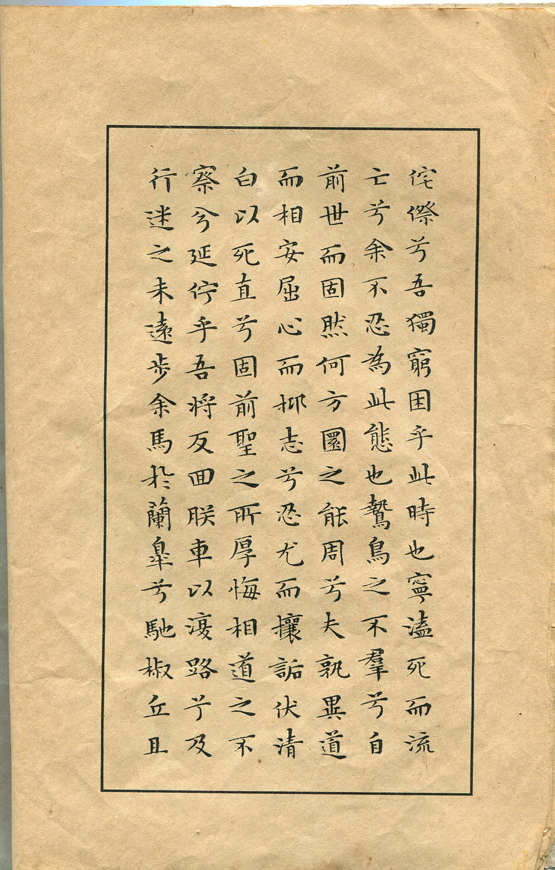 侘傺兮吾獨窮困乎此時也寧溘死而流
亡兮余不忍為此態也鷙鳥之不羣兮自
前世而固然何方圜之能周兮夫孰異道
而相安屈心而抑志兮忍尤而攘詬伏清
白以死直兮固前聖之所厚悔相道之不
察兮延佇乎吾將反回朕車以復路兮及
行迷之未遠步余馬於蘭臯兮馳椒丘且